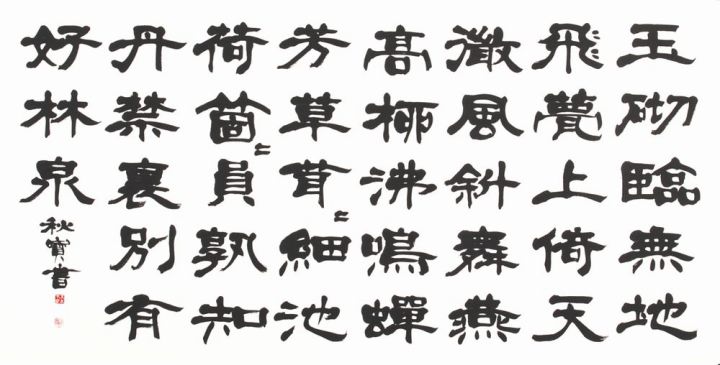 玉砌臨無地
飛甍上倚天
微風斜舞燕
髙桺沸鳴蟬
芳草茸〻細池
荷箇〻員孰知
丹禁裏別有
好林泉
秋寶書